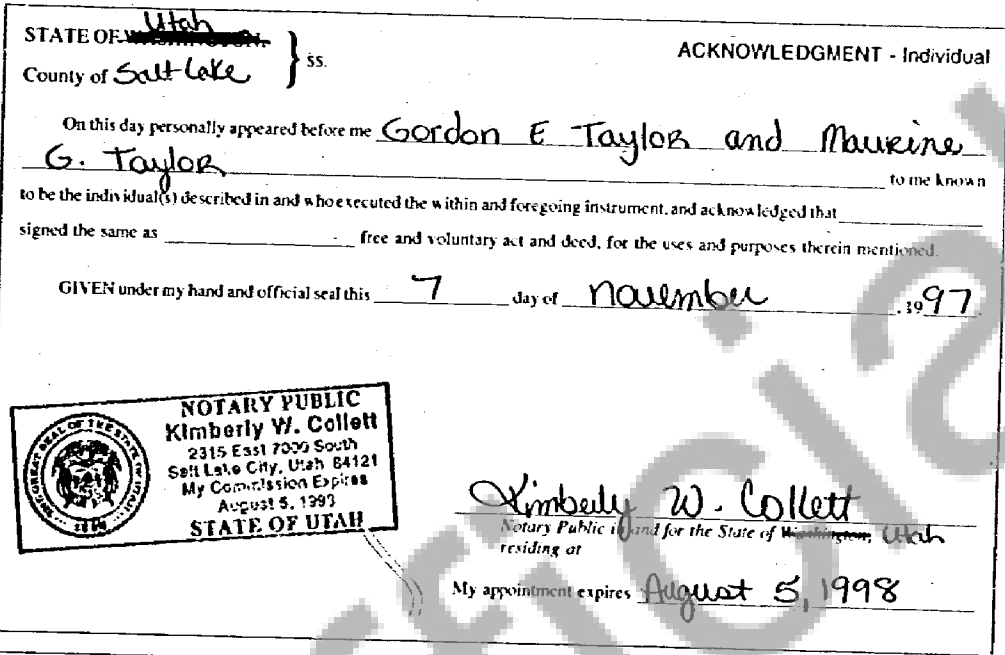 Utah
STATE OF WASHINGTON. } ss.
ACKNOWLEDGMENT - Individual
County of Salt Lake
On this day personally appeared before me Gordon E Taylor and Maurine
G. Taylor to me known
to be the individual(s) described in and who executed the within and foregoing instrument, and acknowledged that
signed the same as free and voluntary act and deed, for the uses and purposes therein mentioned.
GIVEN under my hand and official seal this 7 day of November, 1997.
NOTARY PUBLIC
Kimberly W. Collett
2315 East 7000 South
Salt Lake City, Utah 84121
My Commission Expires
August 5, 1998
STATE OF UTAH
Kimberly W. Collett
Notary Public in and for the State of Washington, Utah
residing at
My appointment expires August 5, 1998